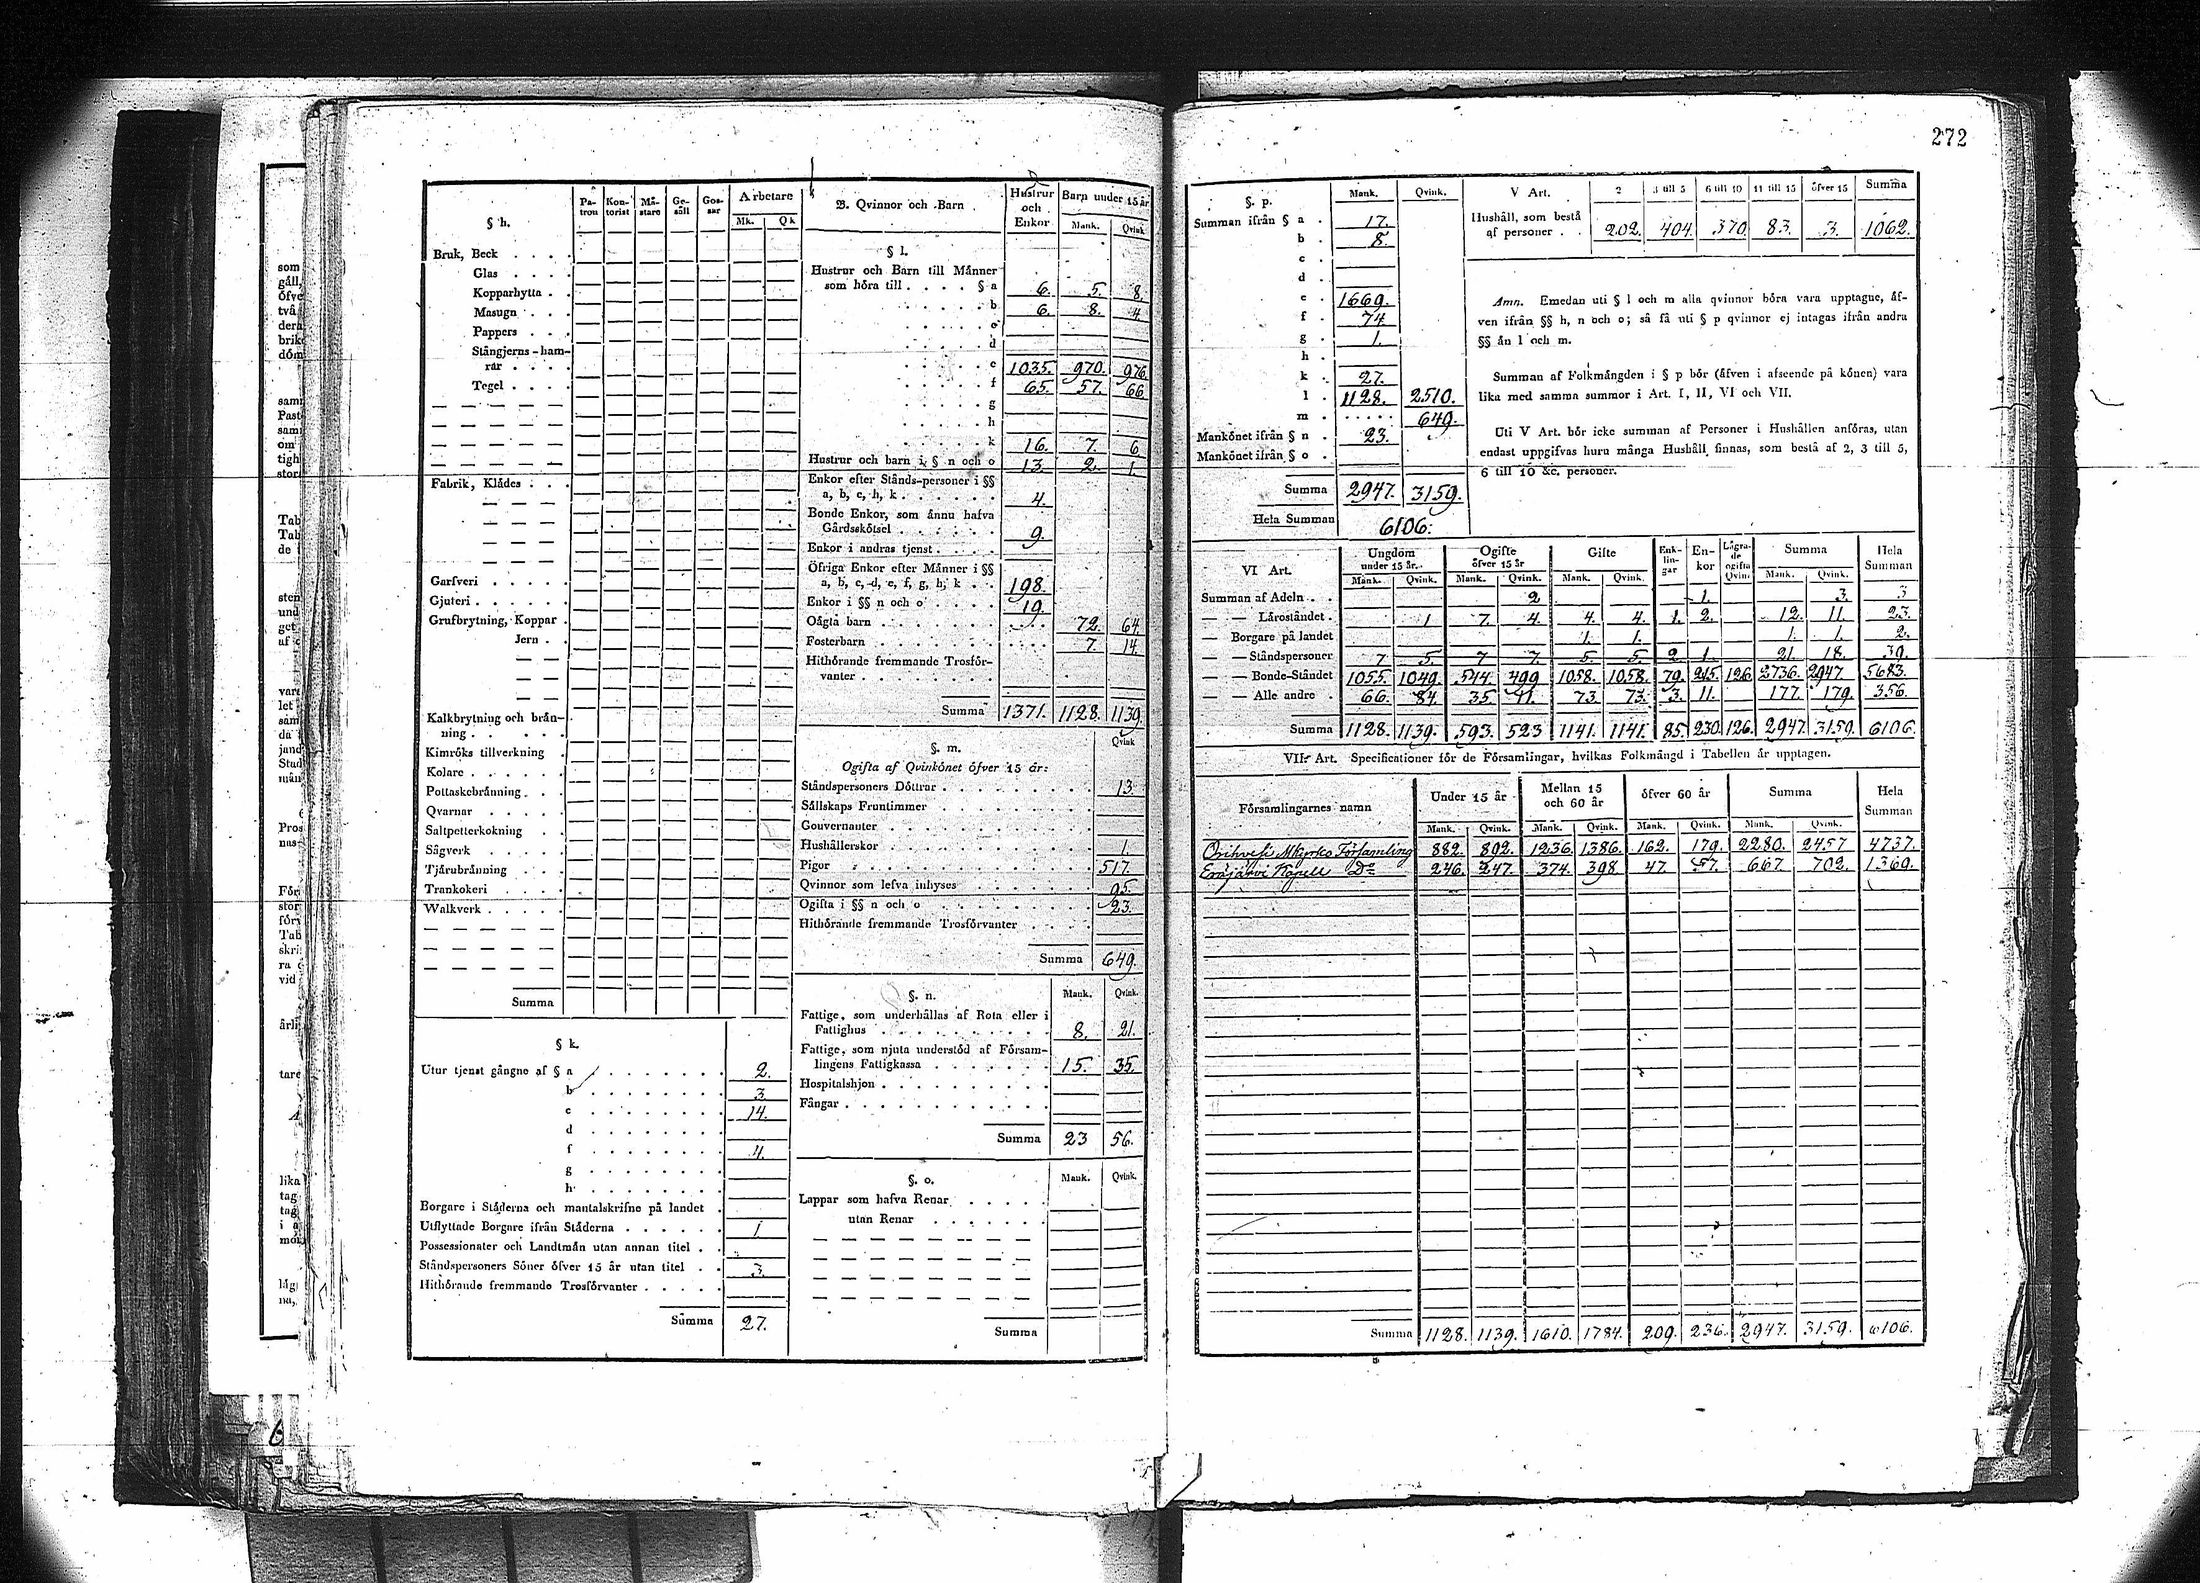 272
§ h.
Pa-tron Kon-torist Mä-stare Ge-säll Gos-sar Arbetare
Mk. Qk
Bruk, Beck
Glas
Kopparhytta
Masugn
Pappers
Stångjerns-ham-
rar
Tegel
Fabrik, Klädes
Garfveri
Gjuteri
Grufbrytning, Koppar
Jern
Kalkbrytning och brän-
ning
Kimröks tillverkning
Kolare
Pottaskebränning
Qvarnar
Saltpetterkokning
Sågverk
Tjärubränning
Trankokeri
Walkverk
Summa
§ k.
Utur tjenst gångne af § a 2.
b 3.
c 14.
d
f 4.
g
h
Borgare i Städerna och mantalskrifne på landet
Utflyttade Borgare ifrån Städerna 1
Possessionater och Landtmän utan annan titel
Ståndspersoners Söner öfver 15 år utan titel 3.
Hithörande fremmande Trosförvanter
Summa 27.
B. Qvinnor och Barn
Hustrur och Enkor Barn under 15 år
Mank. Qvink
§ l.
Hustrur och Barn till Männer
som höra till § a 6. 5. 8.
b 6. 8. 4.
c
d
e 1035. 970. 976.
f 65. 57. 66
g
h
k 16. 7. 6
Hustrur och barn i § n och o 13. 2. 1.
Enkor efter Stånds-personer i §§
a, b, c, h, k 4.
Bonde Enkor, som ännu hafva
Gårdsskötsel 9.
Enkor i andras tjenst
Öfriga Enkor efter Männer i §§
a, b, c, d, e, f, g, h, k 198.
Enkor i §§ n och o 19.
Oägta barn 72. 64.
Fosterbarn 7. 14.
Hithörande fremmande Trosför-
vanter
Summa 1371. 1128. 1139.
§. m. Qvink
Ogifta af Qvinkönet öfver 15 år:
Ståndspersoners Döttrar 13.
Sällskaps Fruntimmer
Gouvernanter
Hushållerskor 1.
Pigor 517.
Qvinnor som lefva inhyses 95.
Ogifta i §§ n och o 23.
Hithörande fremmande Trosförvanter
Summa 649.
§. n. Mank. Qvink.
Fattige, som underhållas af Rota eller i
Fattighus 8. 21.
Fattige, som njuta understöd af Försam-
lingens Fattigkassa 15. 35.
Hospitalshjon
Fångar
Summa 23 56.
§. o. Mank. Qvink.
Lappar som hafva Renar
utan Renar
Summa
§. p. Mank. Qvink.
Summan ifrån § a 17.
b 8.
c
d
e 1669.
f 74.
g 1.
h
k 27.
l 1128. 2510.
m 649.
Mankönet ifrån § n 23.
Mankönet ifrån § o
Summa 2947. 3159.
Hela Summan 6106.
V Art. 2 3 till 5 6 till 10 11 till 15 öfver 15 Summa
Hushåll, som bestå
af personer 202. 404. 370. 83. 3. 1062.
Anm. Emedan uti § l och m alla qvinnor böra vara upptagne, äf-
ven ifrån §§ h, n och o; så få uti § p qvinnor ej intagas ifrån andra
§§ än l och m.
Summan af Folkmängden i § p bör (äfven i afseende på könen) vara
lika med samma summor i Art. I, II, VI och VII.
Uti V Art. bör icke summan af Personer i Hushållen anföras, utan
endast uppgifvas huru många Hushåll finnas, som bestå af 2, 3 till 5,
6 till 10 &c. personer.
VI Art. Ungdom under 15 år. Ogifte öfver 15 år Gifte Enk-lin-gar En-kor Lägra-de ogifta Qvin. Summa Hela Summan
Mank. Qvink. Mank. Qvink. Mank. Qvink. Mank. Qvink.
Summan af Adeln 2 1. 3. 3
— — Läroståndet 1 7. 4. 4. 4. 1. 2. 12. 11. 23.
— Borgare på landet 1. 1. 1. 1. 2.
— — Ståndspersoner 7 5. 7 7. 5. 5. 2. 1. 21. 18. 39.
— — Bonde-Ståndet 1055. 1049. 544. 499 1058. 1058. 79. 215. 126 2736. 2947 5683.
— — Alle andre 66. 84. 35. 11. 73. 73. 3. 11. 177. 179. 356.
Summa 1128. 1139. 593. 523 1141. 1141. 85. 230. 126. 2947. 3159. 6106.
VII. Art. Specificationer för de Församlingar, hvilkas Folkmängd i Tabellen är upptagen.
Församlingarnes namn Under 15 år Mellan 15 och 60 år öfver 60 år Summa Hela Summan
Mank. Qvink. Mank. Qvink. Mank. Qvink. Mank. Qvink.
Orihvesi Mkyrko Församling 882. 892. 1236. 1386. 162. 179. 2280. 2457 4737.
Eräjärvi Kapell Do 246. 247. 374. 398 47. 57. 667. 702. 1369.
Summa 1128. 1139. 1610. 1784. 209. 236. 2947. 3159. 6106.